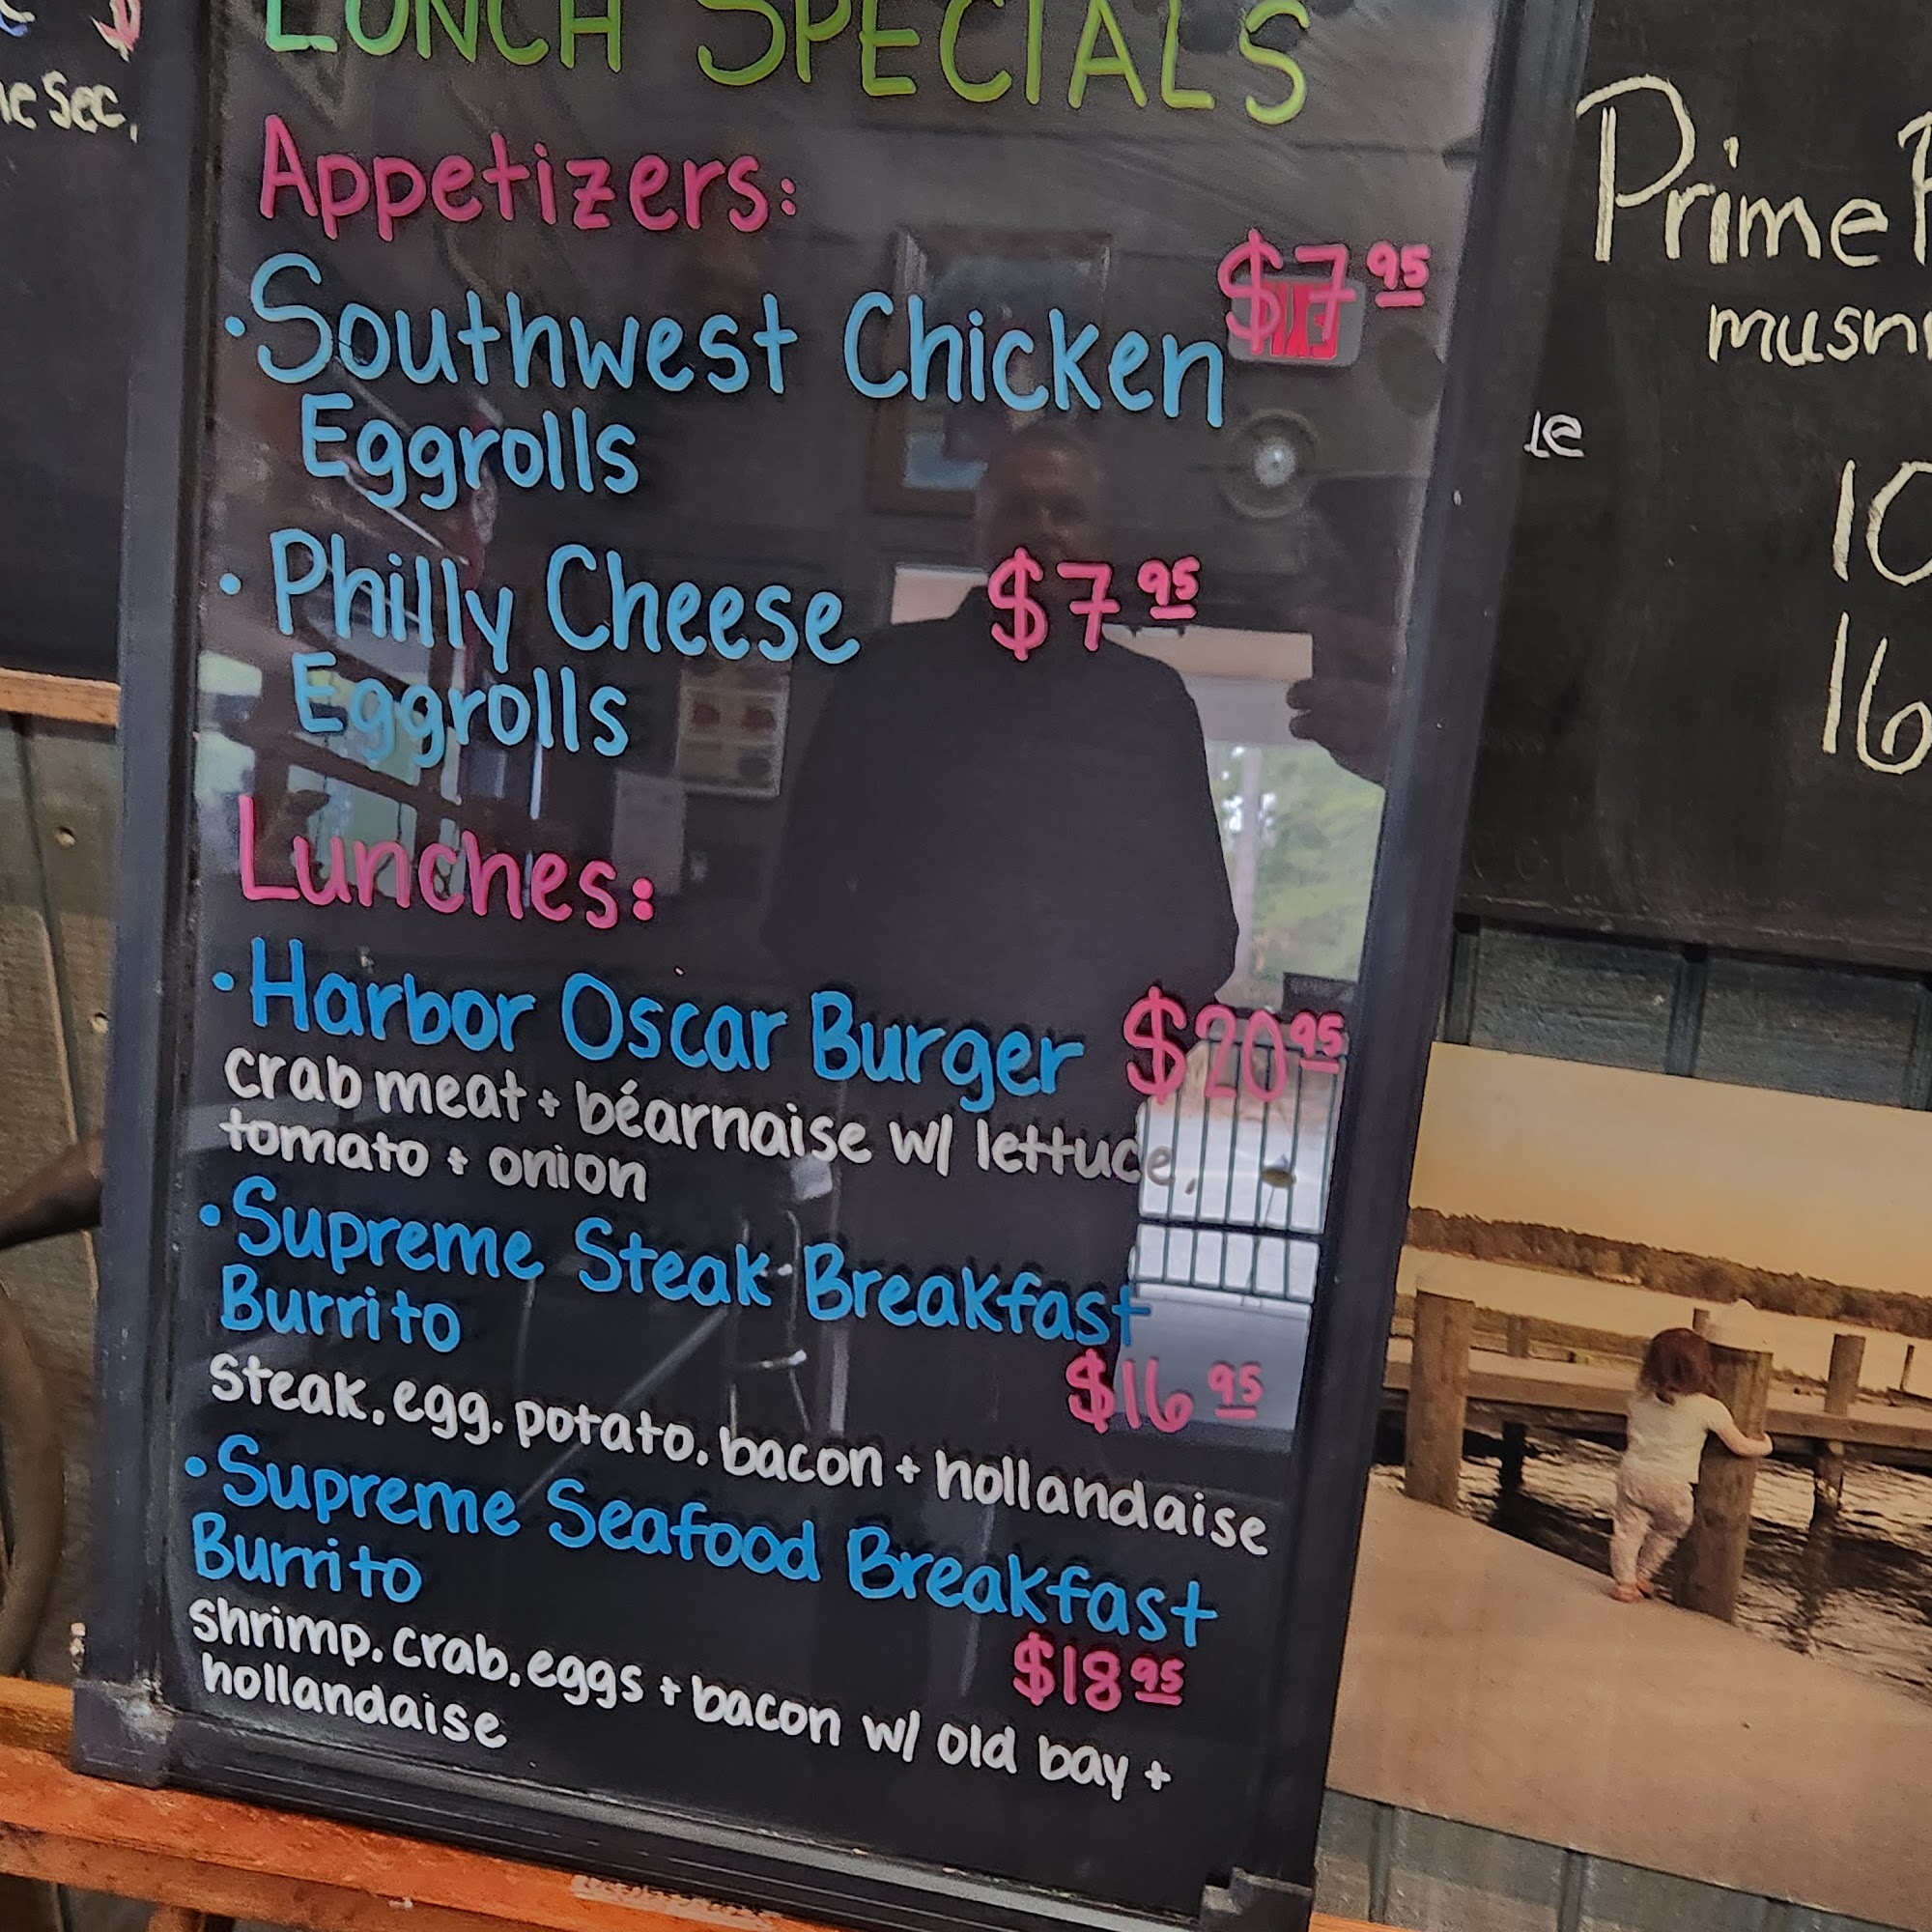 LUNCH SPECIALS
Appetizers:
$7 95
• Southwest Chicken
Eggrolls
• Philly Cheese $7 95
Eggrolls
Lunches:
• Harbor Oscar Burger $20 95
crab meat + béarnaise w/ lettuce,
tomato + onion
• Supreme Steak Breakfast
Burrito
$16 95
steak, egg, potato, bacon + hollandaise
• Supreme Seafood Breakfast
Burrito
$18 95
shrimp, crab, eggs + bacon w/ old bay +
hollandaise
Prime
10
16